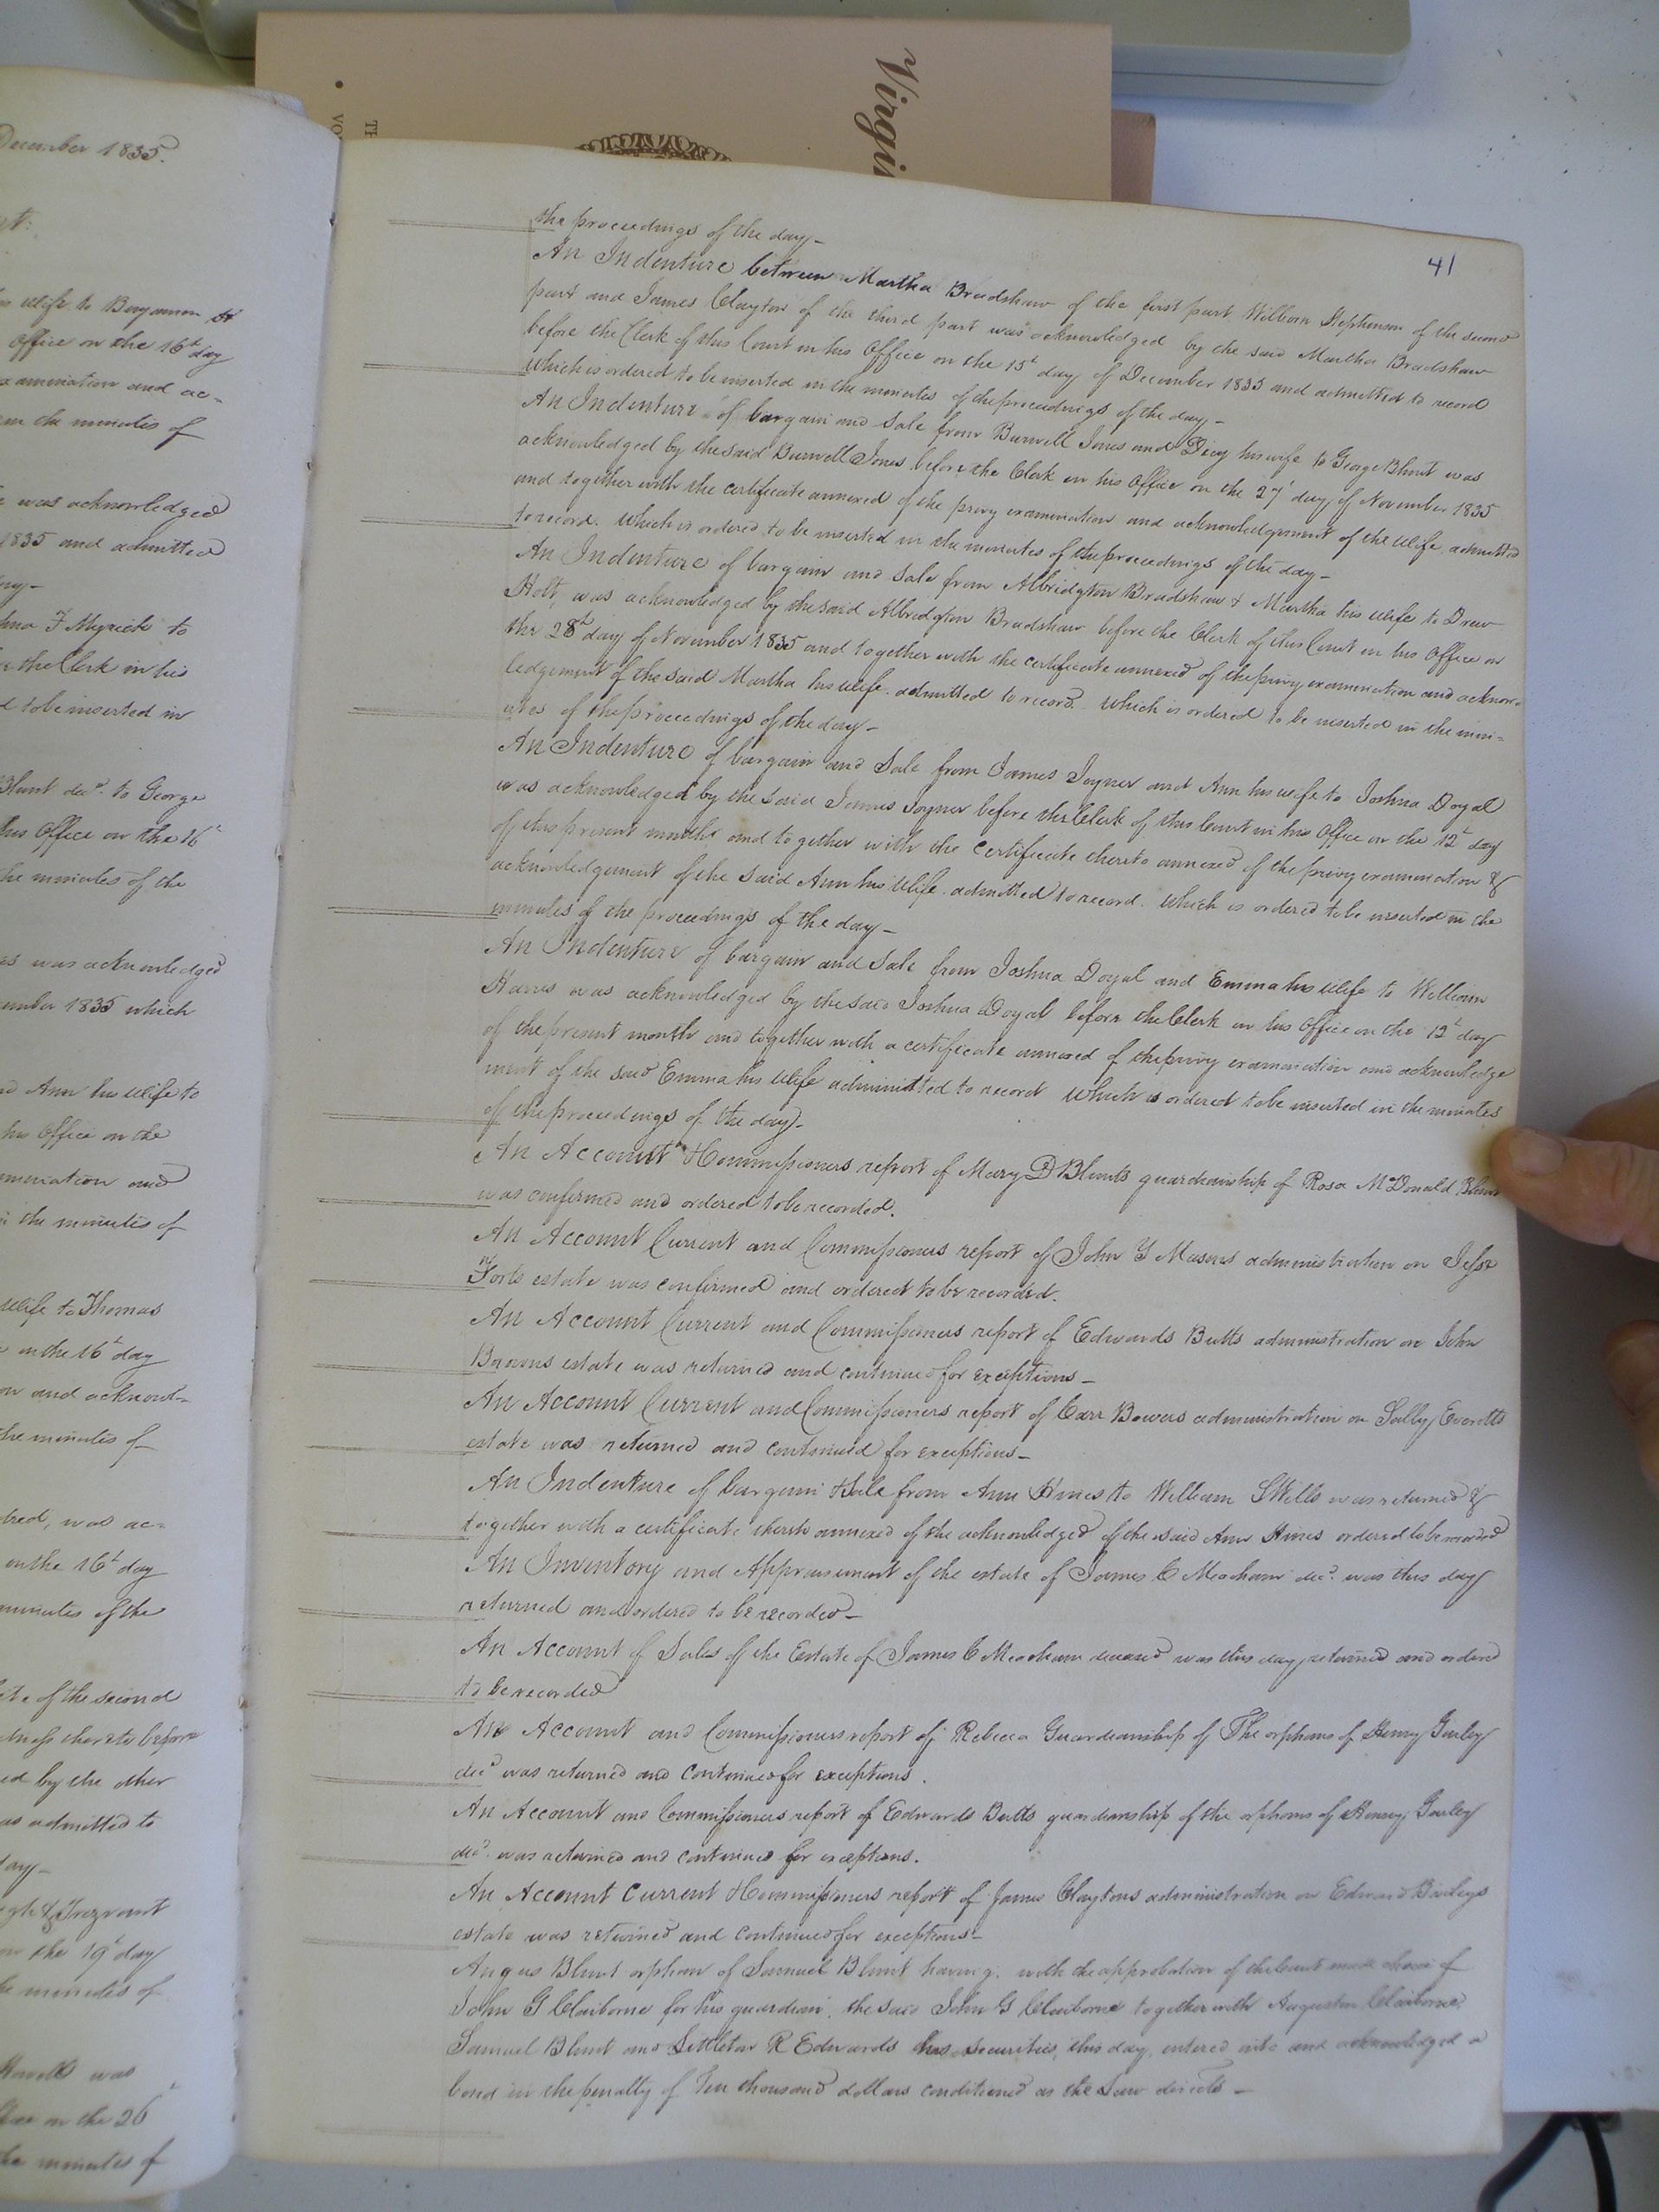 December 1835.
wife to Benjamin
Office on the 16t day
examination and ac-
in the minutes of
was acknowledged
1835 and admitted
F Myrick to
the Clerk in his
to be inserted in
Blunt decd. to George
his Office on the 16t
the minutes of the
was acknowledged
1835 which
Ann his wife to
his Office on the
examination and
in the minutes of
wife to Thomas
on the 16t day
and acknowl-
the minutes of
was ac-
on the 16t day
minutes of the
of the second
thereto before
by the other
was admitted to
day-
& Trezvant
on the 19t day
minutes of
was
on the 26
the minutes of
Virgi
41
the proceedings of the day-
An Indenture between Martha Bradshaw of the first part Wilborn Stephenson of the second
part and James Clayton of the third part was acknowledged by the said Martha Bradshaw
before the Clerk of this Court in his Office on the 15t day of December 1835 and admitted to record
Which is ordered to be inserted in the minutes of the proceedings of the day-
An Indenture of bargain and Sale from Burwell Jones and his wife to George Blunt was
acknowledged by the said Burwell Jones before the Clerk in his Office on the 27t day of November 1835
and together with the certificate annexed of the privy examination and acknowledgement of the wife admitted
to record. Which is ordered to be inserted in the minutes of the proceedings of the day-
An Indenture of bargain and Sale from Albridgton Bradshaw & Martha his wife to Drew
Holt, was acknowledged by the said Albridgton Bradshaw before the Clerk of this Court in his Office on
the 28t day of November 1835 and together with the certificate annexed of the privy examination and acknow-
ledgement of the said Martha his wife. admitted to record. Which is ordered to be inserted in the min-
utes of the proceedings of the day-
An Indenture of bargain and Sale from James Joyner and Ann his wife to Joshua Doyal
was acknowledged by the said James Joyner before the Clerk of this Court in his Office on the 12t day
of this present month and together with the certificate thereto annexed of the privy examination &
acknowledgement of the said Ann his wife. admitted to record. Which is ordered to be inserted in the
minutes of the proceedings of the day-
An Indenture of bargain and Sale from Joshua Doyal and Emma his wife to William
Harris was acknowledged by the said Joshua Doyal before the Clerk in his Office on the 12t day
of the present month and together with a certificate annexed of the privy examination and acknowledge
ment of the said Emma his wife admitted to record Which is ordered to be inserted in the minutes
of the proceedings of the day-
An Account & Commissioners report of Mary D Blunts guardianship of Rosa McDonald Blunt
was confirmed and ordered to be recorded.
An Account Current and Commissioners report of John Y Masons administration on Jesse
Worts estate was confirmed and ordered to be recorded.
An Account Current and Commissioners report of Edwards Butts administration on John
Browns estate was returned and continued for exceptions-
An Account Current and Commissioners report of Carr Bowers administration on Sally Everetts
estate was returned and continued for exceptions-
An Indenture of bargain & Sale from Ann Hines to William S Wells was returned &
together with a certificate thereto annexed of the acknowledged of the said Ann Hines ordered to be recorded
An Inventory and Appraisement of the estate of James C Meacham decd. was this day
returned and ordered to be recorded-
An Account of Sales of the Estate of James C Meacham deceased was this day returned and ordered
to be recorded
An Account and Commissioners report of Rebecca Guardianship of The orphans of Henry Gurley
decd was returned and continued for exceptions.
An Account and Commissioners report of Edwards Butts guardianship of the orphans of Henry Gurley
decd. was returned and continued for exceptions.
An Account Current & Commissioners report of James Claytons administration on Edward Baileys
estate was returned and continued for exceptions-
Angus Blunt orphan of Samuel Blunt having, with the approbation of the Court made choice of
John G Claiborne for his guardian. the said John G Claiborne together with Augustus Claiborne,
Samuel Blunt and Littleton R Edwards his securities, this day, entered into and acknowledged a
bond in the penalty of Ten thousand dollars conditioned as the Law directs-